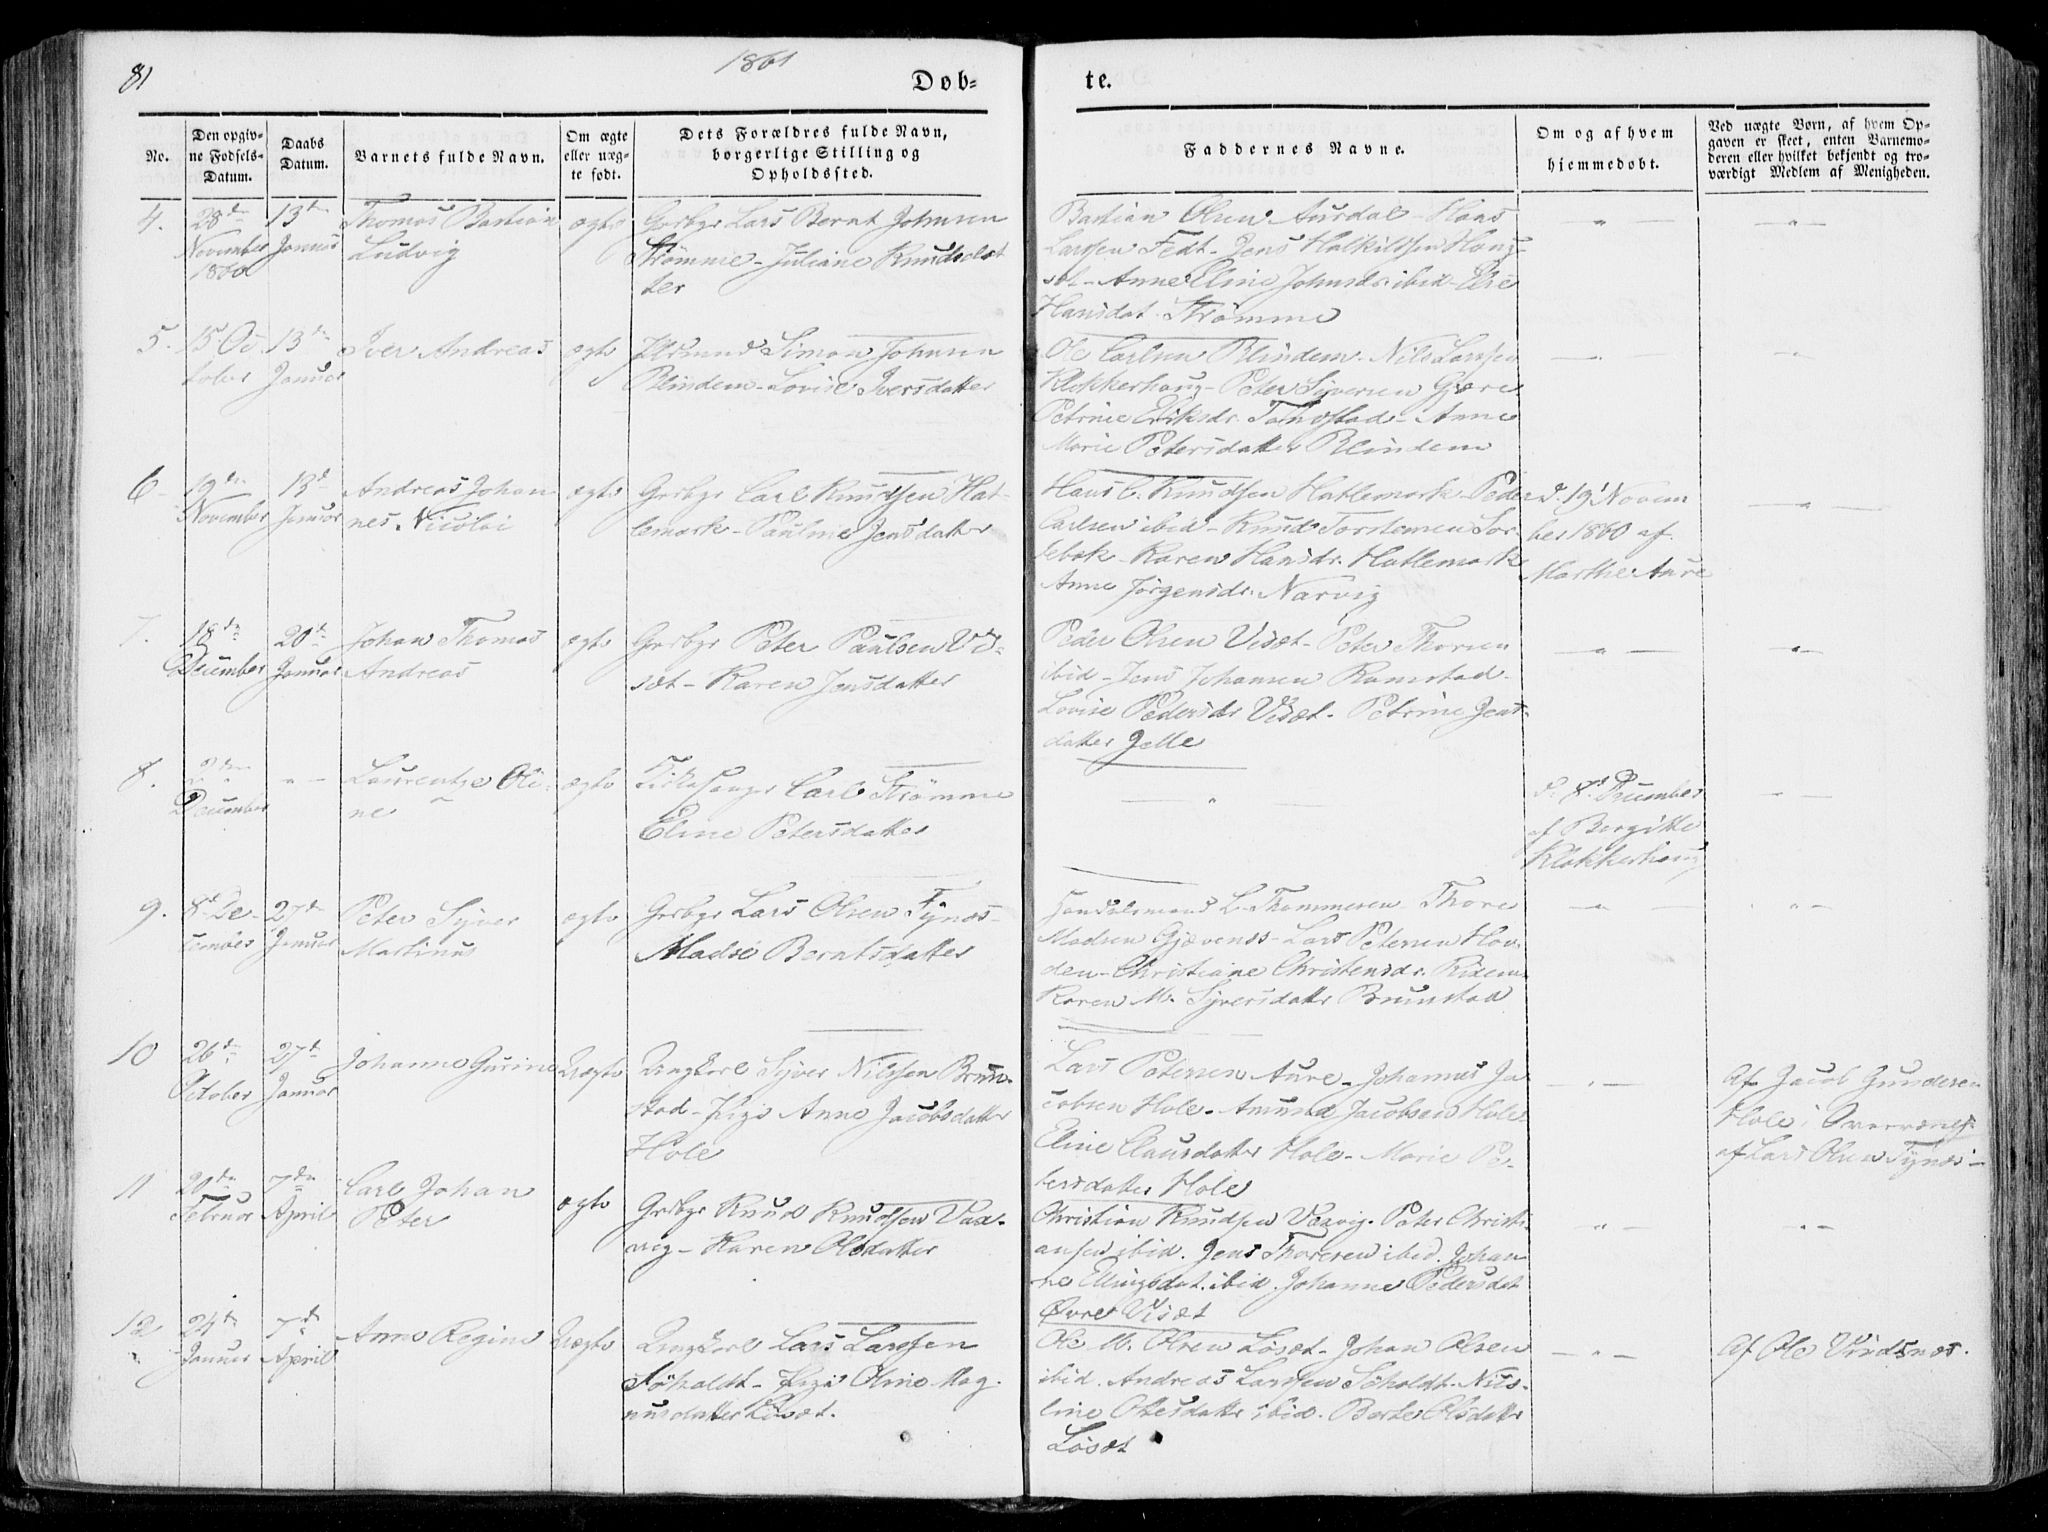 81
1861
Døb-
te.
No.
Den opgiv-
ne Fødsels-
Datum.
Daabs
Datum.
Barnets fulde Navn.
Om ægte
eller uæg-
te født.
Dets Forældres fulde Navn,
borgerlige Stilling og
Opholdssted.
Faddernes Navne.
Om og af hvem
hjemmedøbt.
Ved uægte Børn, af hvem Op-
gaven er skeet, enten Barnemo-
deren eller hvilket bekjendt og tro-
værdigt Medlem af Menigheden.
4.
28de
November
1860
13de
Januar
Thomas Bastian
Ludvig
ægte
Grbgr Lars Bernt Johnsen
Strømme - Juliane Knudsdat
ter
Bastian Olsen Aurdal - Hans
Larssen Fedt - Jens Halkildssen Houg-
Anne Eline Johnsdr ibid - Else
Hansdat. Strømme
5.
15 Oc
tober
13de
Januar
Iver Andreas
ægte
Simon Johnsen
Blindem - Lovise Iversdatter
Ole Carlsen Blindem. Nils Larssen
Klokkerhoug - Peter Syversen Gjære
Petrine Eriksdr. Tandstad - Anne
Marie Petersdatter Blindem
6
19de
November
13d
Januar
Andreas Johan
nes Nicolai
ægte
Grbgr Carl Knudssen Hat-
lemark - Pauline Jensdatter
Hans C. Knudssen Hatlemark - Peder
Carlsen ibid - Knud Torstensen Sor-
tebak - Karen Hansdr. Hatlemark
Anne Jørgensdr. Narvig
d. 19 Novem
ber 1860 af
Marthe Aure
7.
18de
December
20de
Januar
Johan Thomas
Andreas
ægte
Grbgr Peter Paulsen Vi-
sæt - Karen Jensdatter
Peder Olsen Visæt - Peter Thorsen
ibid - Jens Johansen Ramstad
Lovise Pedersdr Visæt. Petrine Jens-
datter Jelle
8.
2den
December
Laurentze Oli-
ne
ægte
Kirkesanger Carl Strømme
Eline Petersdatter
d. 8d December
af Bergitte
Klokkerhoug
9.
8d De-
cember
27de
Januar
Peter Syver
Martinus
ægte
Grbgr Lars Olsen Tynæs -
Madse Berntsdatter
Handelsmand L. Thommesen Thore
Madsen Gjævenes - Lars Petersen Hov-
den - Christiane Christensdr. Ridem
Karen M. Syversdatter Brunstad
10
26de
October
27de
Januar
Johanne Gurine
Uægte
Ungkarl Syver Nilssen Brun-
stad - Pige Anne Jacobsdatter
Hole
Lars Petersen Aure - Johannes Ja
cobsen Hole. Amund Jacobsen Hole
Eline Clausdatter Hole - Marie Pe-
tersdatter Hole
Af Jacob Gundersen
Hole i Overværelse
af Lars Olsen Tynæs -
11
20de
Februar
7de
April
Carl Johan
Peter
ægte
Grbgr Knud Knudssen Vax-
vig - Karen Olsdatter
Christian Knudsen Vaxvig. Peter Christi-
ansen ibid. Jens Thoresen ibid. Johan
ne Ellingsdat. ibid. Johanne Pedersdat
Øvre Visæt
12
24de
Januar
7de
April
Anne Regine
Uægte
Ungkarl Lars Larssen
Søholdt - Pige Oline Mag-
nusdatter Løsæt.
Ole M. Olsen Løsæt - Johan Olsen
ibid. Andreas Larssen Søholdt. Nils-
line Olsdatter ibid. Berte Olsdatter
Løsæt
Af Ole Vindsnæs.